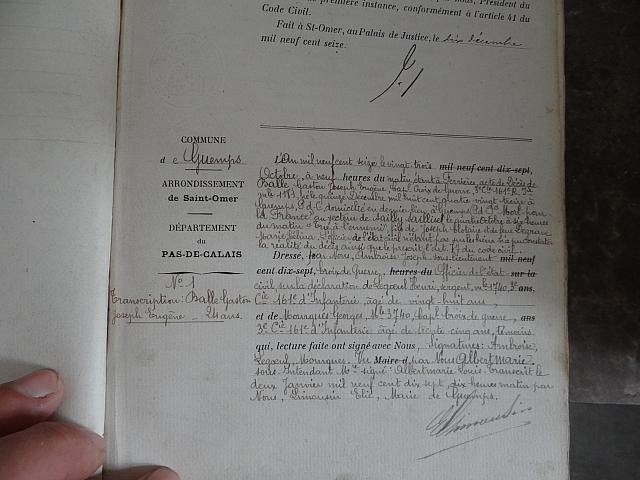 première instance, conformément à l'article 41 du
Code Civil.
Fait à St-Omer, au Palais de Justice, le six décembre
mil neuf cent seize.
COMMUNE
de Guemps
ARRONDISSEMENT
de Saint-Omer
DÉPARTEMENT
du
PAS-DE-CALAIS
N° 1
Transcription: Balle Gaston
Joseph Eugène - 24 ans.
L'An mil neuf cent seize, le vingt-trois mil neuf cent dix-sept,
Octobre, à neuf heures du matin, étant à acte de décès de
Balle Gaston Joseph Eugène, Cap. Croix de guerre 3e Cie 161e R.
né le quinze Décembre mil huit cent quatre vingt treize à
P. d. C. domicilié en dernier lieu à Guemps P. d. C. "Mort pour
la France" au secteur de Sailly Saillisel le quatre Octobre à six heures
du matin tué à l'ennemi, fils de Joseph et de feue Legrand
Marie l'officier de l'état civil n'étant pas
la réalité du décès ainsi que le prescrit l'art. 77 du code civil.
Dressé, par Nous, Ambroise Joseph sous-lieutenant mil neuf
cent dix-sept, Croix de Guerre, heures du Officier de l'état sur la
civil, sur la déclaration de Legoeul Henri, sergent, mle 1740, 3e ans,
Cie 161e d'Infanterie, âgé de vingt-huit ans,
et de Mourgues Georges, Mle 3740, Cap. croix de guerre, ans
3e Cie 161e d'Infanterie, âgé de cinq ans, témoins
qui, lecture faite ont signé avec Nous. Signatures: Ambroise,
Legoeul, Mourgues. Vu Maire d par Nous Albert Marie
sous Intendant Mre signé: Albert Marie Louis. Transcrit le
deux Janvier mil neuf cent dix sept, dix heures matin par
Nous, Limousin Elie, Maire de Guemps.
Limousin